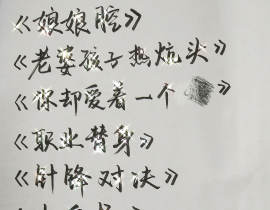 《娘娘腔》
《老婆孩子热炕头》
《你却爱着一个 》
《职业替身》
《针锋对决》